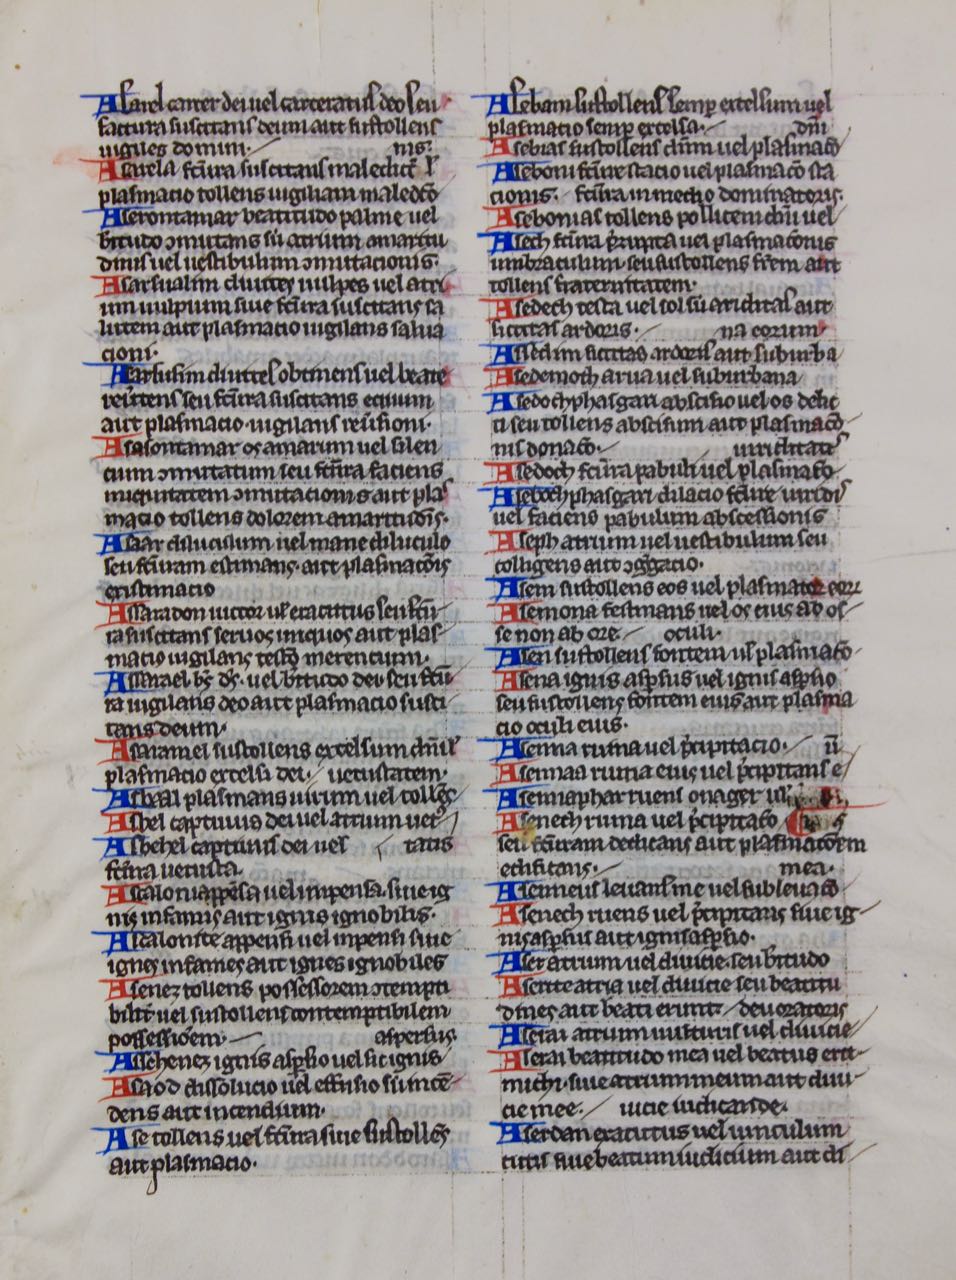 Asarel carcer dei uel carceratus deo seu
factura suscitans deum aut sustollens
uigiles domini. nis.
plasmacio tollens uigiliam maledco
Aserontamar beatitudo palme uel
btitudo ɔmutans siu atrium amaritu
dinis uel uestibulum ɔmutacionis.
Asarsualim diuites uulpes uel atri
um uulpium siue fctura suscitans sa
lutem aut plasmacio uigilans salua
cioni.
aut plasmacio uigilans
Asasontamar os amarum uel silen
cium ɔmutatum seu fctura faciens
iniquitatem ɔmutacionis aut plas
macio tollens dolorem amaritudis.
Asaar diluculum uel mane diluculo
seu fcturam estimans. aut plasmacois
existimacio
ra suscitans seruos iniquos aut plas
macio uigilans merencium.
Asarael uel btitudo dei seu fctu
ra uigilans deo aut plasmacio susci
tans deum.
Asaramel sustollens excelsum
plasmacio excelsi dei uetustatem.
Asbaal plasmans uirum uel tollens
Asbel captiuus dei uel atrium uet
Asbehel captiuus dei uel tatis
fctura uetusta.
Ascalon appensa uel inpensa. siue ig
nis infamis aut ignis ignobilis.
Ascalonite appensi uel inpensi siue
ignes infames aut ignes ignobiles
Asenez tollens possessorem ɔtempti
bilem uel sustollens contemptibilem
possessioem. aspersus.
Aschenez ignis aspsio uel sic ignis
Asaod dissolucio uel effusio siu incē
dens aut incendium.
Ase tollens uel fctura siue sustolles
aut plasmacio.
Asebam sustollens semp excelsum uel
plasmacio semp excelsa. dni
Asebias sustollens dnm uel plasmaco
Aseboni fctura stacio uel plasmaco sta
cionis. fctura in medio dominatoris.
Asebonias tollens pollicem dni uel
Asech fctura prupta uel plasmaconis
umbraculum. seu sustollens frem aut
tollens fraternitatem.
Asedech testa uel sol siu ariditas aut
siccitas ardoris. na eorum
Assedim siccitas ardoris aut suburba
Asedemoth arua uel suburbana
Asedochphasgar abscisio uel os
seu tollens abscisum aut plasmaco
nis donaco. uiriditatis
Asedoch fctura pabuli uel plasmaco
uel faciens pabulum abscessionis
Aseph atrium uel uestibulum seu
colligens aut ɔggacio.
Asem sustollens eos uel plasmator eor
Asemona festinans uel os eius ab os
se non ab ore. oculi.
Asen sustollens fontem ul plasmaco
Asena ignis aspsus uel ignis aspsio
seu sustollens fontem eius aut plasma
cio oculi eius.
Asenna ruina uel pcipitacio.
Asennaa ruina eius uel pcipitans e
Asennaphar ruens onager ul
Asenech ruina uel pcipitaco
seu fcturam dedicans aut plasmacoem
edificans. mea.
leuans me uel subleuaco
Asenech ruens uel pcipitans siue ig
nis aspsus aut ignis aspsio.
Aser atrium uel diuicie. seu btitudo
Aserite atria uel diuicie seu beatitu
dines aut beati erunt deuoratoris
Aserai atrium uulturis uel diuicie
Aserai beatitudo mea uel beatus erit
michi. siue atrium meum aut diui
cie mee. uicie iudicande.
Aserdan exacutus uel uinculum
tutis siue beatum iudicium aut di